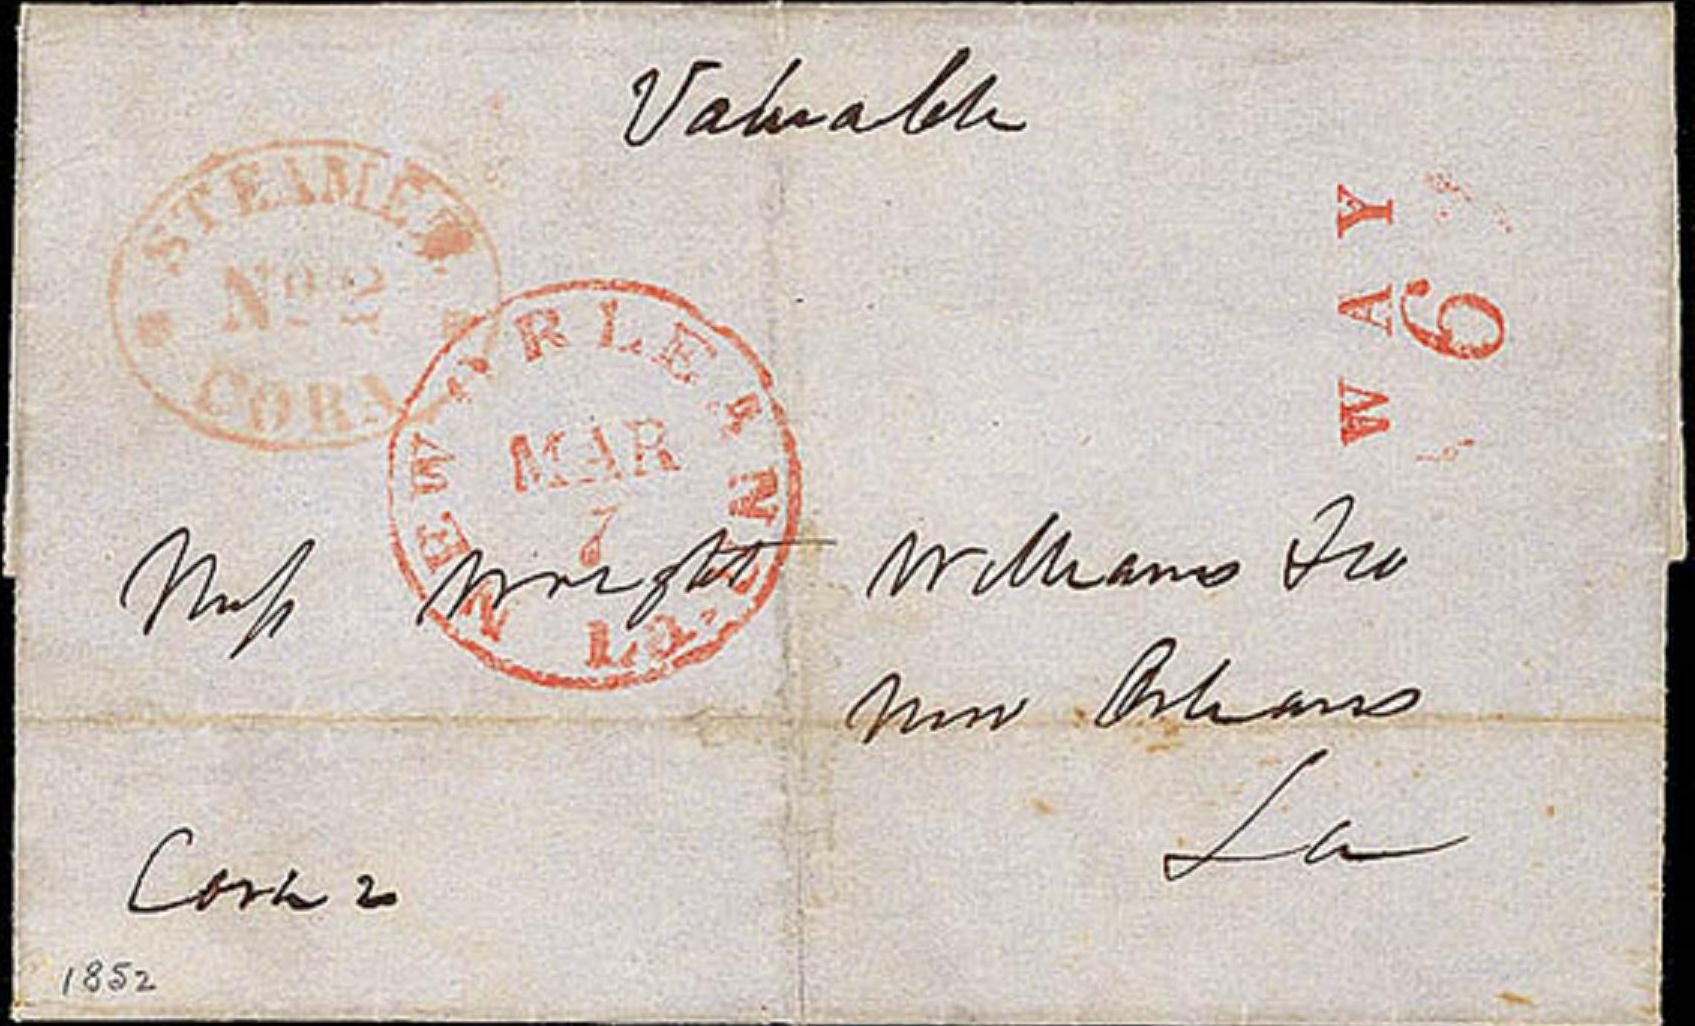 Valuable
STEAMER
No. 2
CORA
WAY
6
NEW ORLEANS LA.
MAR
7
Messrs Wright Williams & Co
New Orleans
La
Cora 2
1852